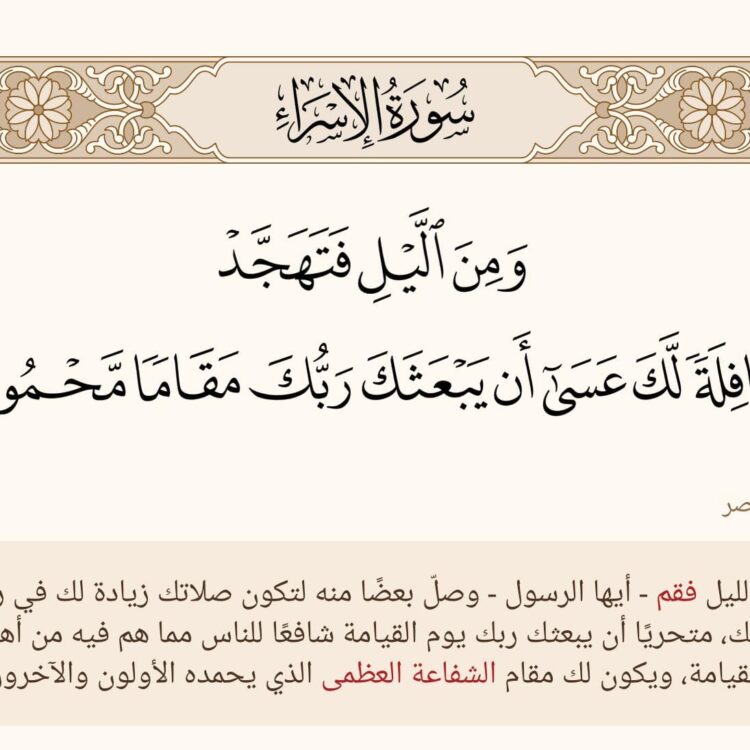 سُورَةُ الإِسْرَاءِ
وَمِنَ ٱلَّيْلِ فَتَهَجَّدْ
لَّكَ عَسَىٰٓ أَن يَبْعَثَكَ رَبُّكَ مَقَامًا
الليل فقم - أيها الرسول - وصلّ بعضًا منه لتكون صلاتك زيادة لك في
متحريًا أن يبعثك ربك يوم القيامة شافعًا للناس مما هم فيه من
ويكون لك مقام الشفاعة العظمى الذي يحمده الأولون